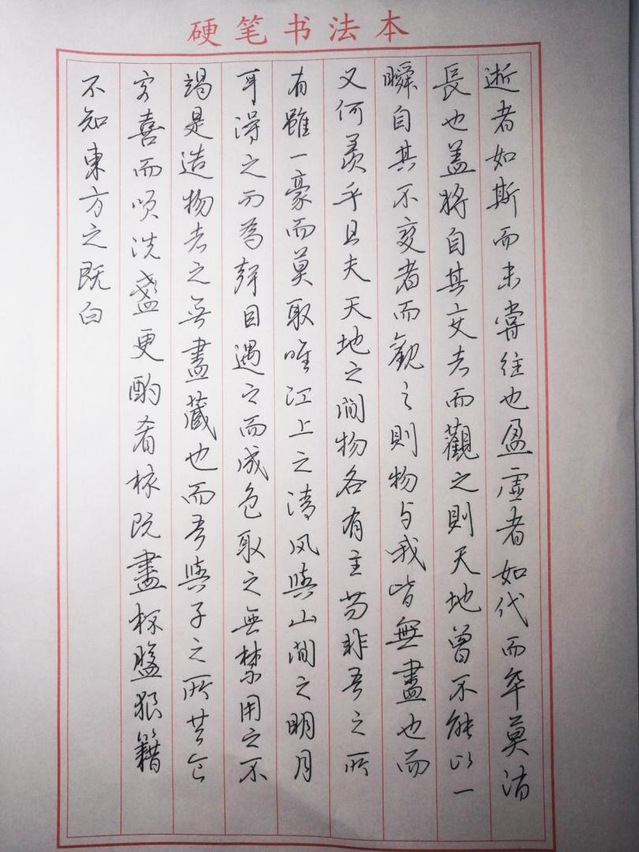 硬笔书法本
逝者如斯而未嘗往也盈虚者如代而卒莫消
長也盖將自其变者而觀之則天地曾不能以一
瞬自其不变者而觀之則物与我皆無盡也而
又何羨乎且夫天地之间物各有主苟非吾之所
有雖一豪而莫取唯江上之清风與山间之明月
耳得之而為聲目遇之而成色取之無禁用之不
竭是造物者之无盡藏也而吾與子之所共食
客喜而笑洗盏更酌肴核既盡杯盤狼籍
不知東方之既白